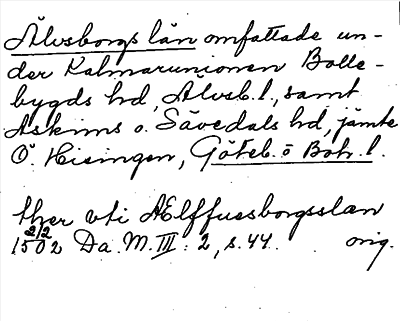 Älvsborgs län omfattade un-
der Kalmarunionen Bolle-
bygds hd, Älvsb. l., samt
Askims o. Sävedals hd, jämte
Ö. Hisingen, Göteb. o Boh. l.
ther vti AElffussborgsslan
2/2
1502 Da. M. III: 2, s. 44. orig.